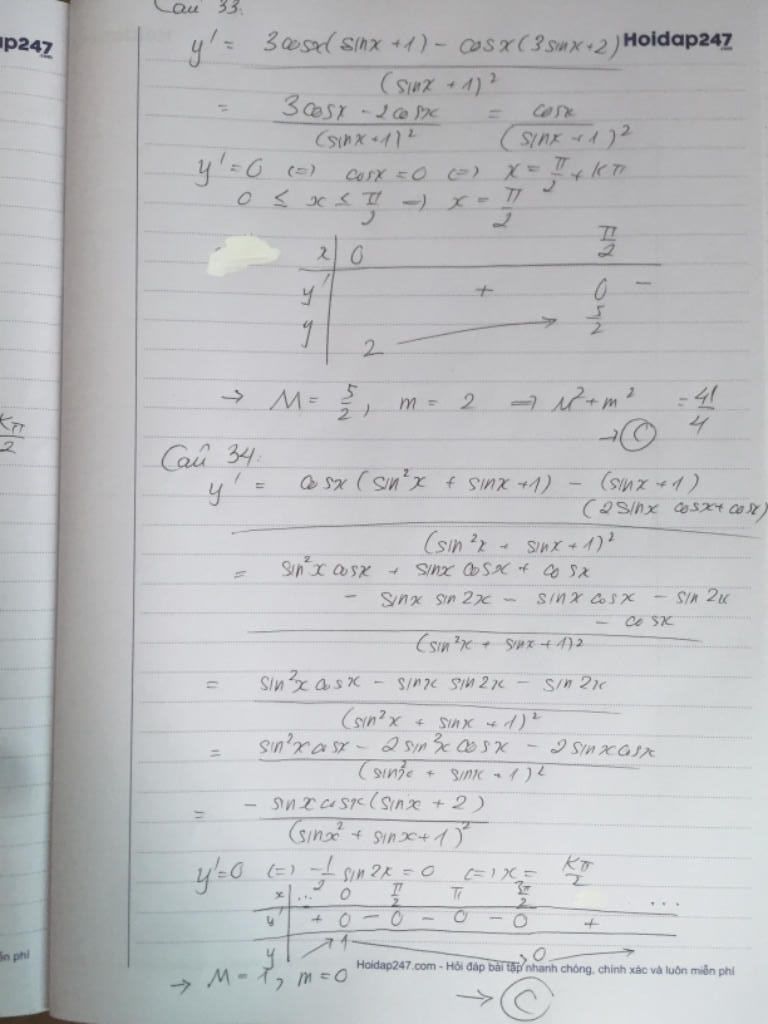 Câu 33:
ap247
Hoidap247
y' = 3cosx(sinx+1) - cosx(3sinx+2)
(sinx+1)²
= 3cosx - 2cosx = cosx
(sinx+1)² (sinx+1)²
y'=0 (=) cosx=0 (=) x= π/2 + kπ
0 ≤ x ≤ π/2 → x = π/2
x 0 π/2
y' + 0 -
y 2 5/2
→ M = 5/2, m = 2 => M²+m² = 41/4
→ C
Kπ/2
Câu 34:
y' = cosx (sin²x + sinx+1) - (sinx+1)
(2sinx cosx+cosx)
(sin²x + sinx+1)²
= sin²x cosx + sinx cosx + cosx
- sinx sin2x - sinx cosx - sin2x
- cosx
(sin²x + sinx+1)²
= sin²x cosx - sinx sin2x - sin2x
(sin²x + sinx+1)²
= sin²x cosx - 2sin²x cosx - 2sinx cosx
(sin²x + sinx+1)²
= - sinx cosx(sinx + 2)
(sinx² + sinx+1)²
y'=0 (=) -1/2 sin2x = 0 (=) x = Kπ/2
x ... 0 π/2 π 3π/2 ...
y' + 0 - 0 - 0 - 0 +
y 1 0
ễn phí
Hoidap247.com - Hỏi đáp bài tập nhanh chóng, chính xác và luôn miễn phí
→ M = 1, m = 0
→ C